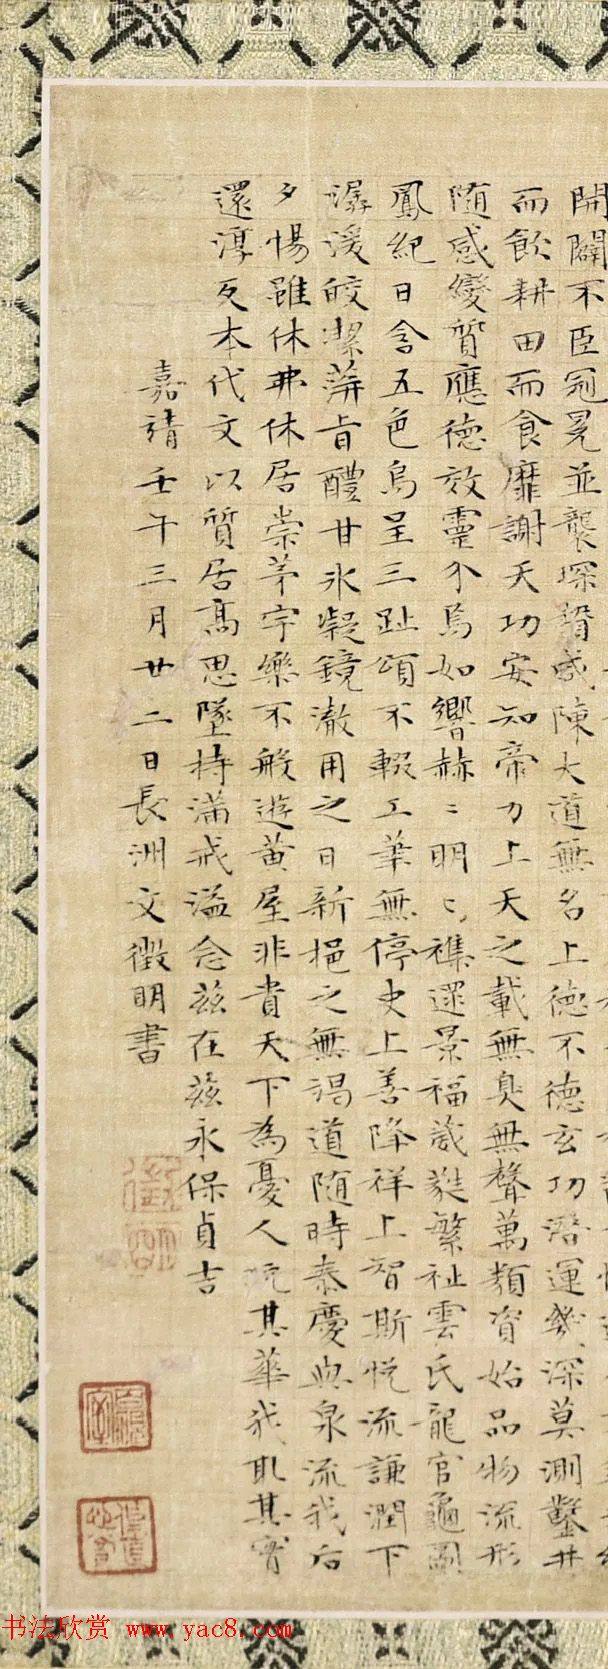 開闢不臣冠冕並襲琛贄咸陳大道無名上德不德玄功潛運幾深莫測鑿井
而飲耕田而食靡謝天功安知帝力上天之載無臭無聲萬類資始品物流形
随感變質應德效靈介焉如響赫〻明〻襍遝景福葳蕤繁祉雲氏龍官龜圖
鳳紀日含五色烏呈三趾頌不輟工筆無停史上善降祥上智斯悅流謙潤下
潺湲皎潔蓱旨醴甘冰凝鏡澈用之日新挹之無竭道随時泰慶與泉流我后
夕惕雖休弗休居崇茅宇樂不般遊黃屋非貴天下為憂人玩其華我取其實
還淳反本代文以質居高思墜持滿戒溢念茲在茲永保貞吉
嘉靖壬午三月廿二日長洲文徵明書
徵明
书法欣赏 www.yac8.com